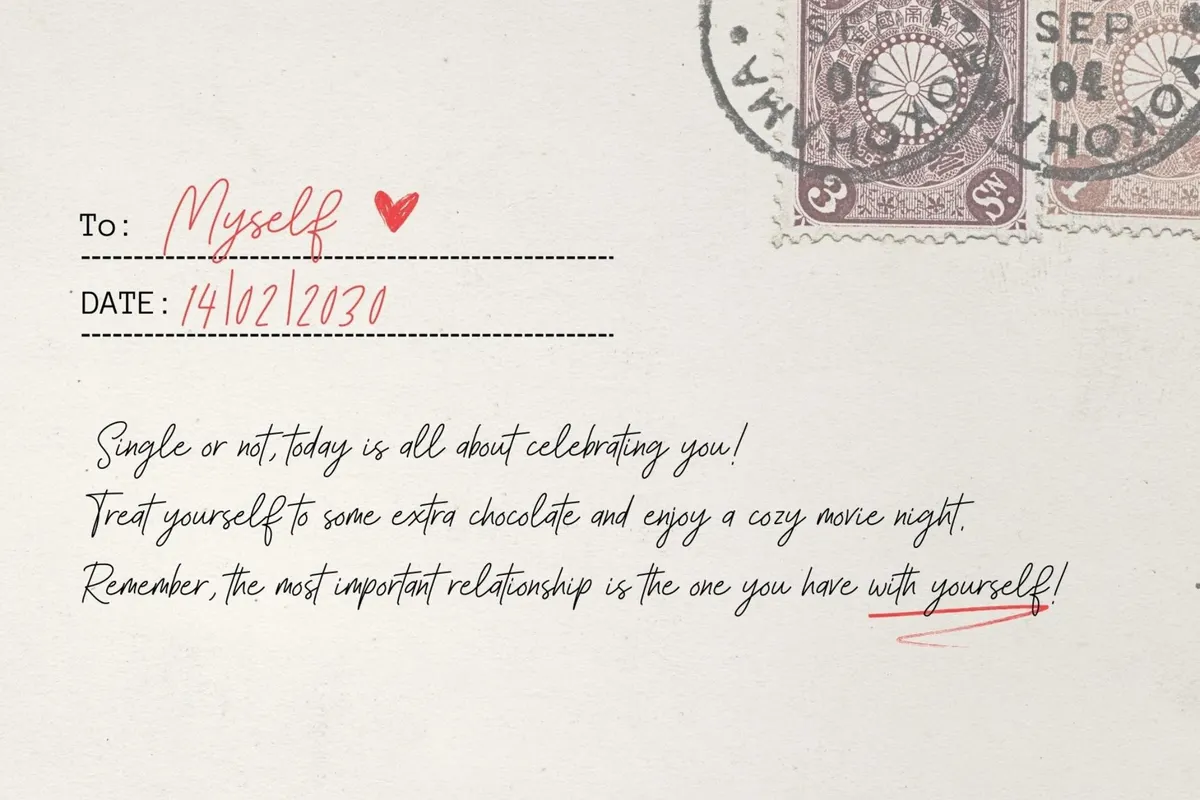 SEP
04
YOKOHAMA
3 Sn.
1
To: Myself
DATE: 14|02|2030
Single or not, today is all about celebrating you!
Treat yourself to some extra chocolate and enjoy a cozy movie night.
Remember, the most important relationship is the one you have with yourself!